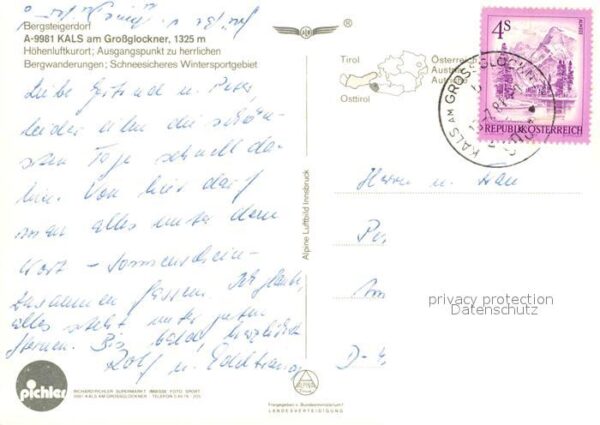 Bergsteigerdorf
A-9981 KALS am Großglockner, 1325 m
Höhenluftkurort; Ausgangspunkt zu herrlichen
Bergwanderungen; Schneesicheres Wintersportgebiet
Liebe Gertrud u. Peter
leider eilen die schön-
sten Tage schnell da-
hin. Von hier darf
man alles unter dem
Wort - Sonnenschein -
zusammen fassen. Ich glaube,
alles steht unter guten
Sternen. Bis bald, herzlichst
Rolf u.
pichler
RICHARD PICHLER SUPERMARKT IMBISSE FOTO SPORT
9981 KALS AM GROSSGLOCKNER
Alpine Luftbild Innsbruck
Freigegeben v. Bundesministerium f.
LANDESVERTEIDIGUNG
Tirol
Osttirol
Österreich
Austria
4S
REPUBLIK ÖSTERREICH
KALS AM GROSSGLOCKNER
Herrn u. Frau
Pe
Am
D-
privacy protection
Datenschutz